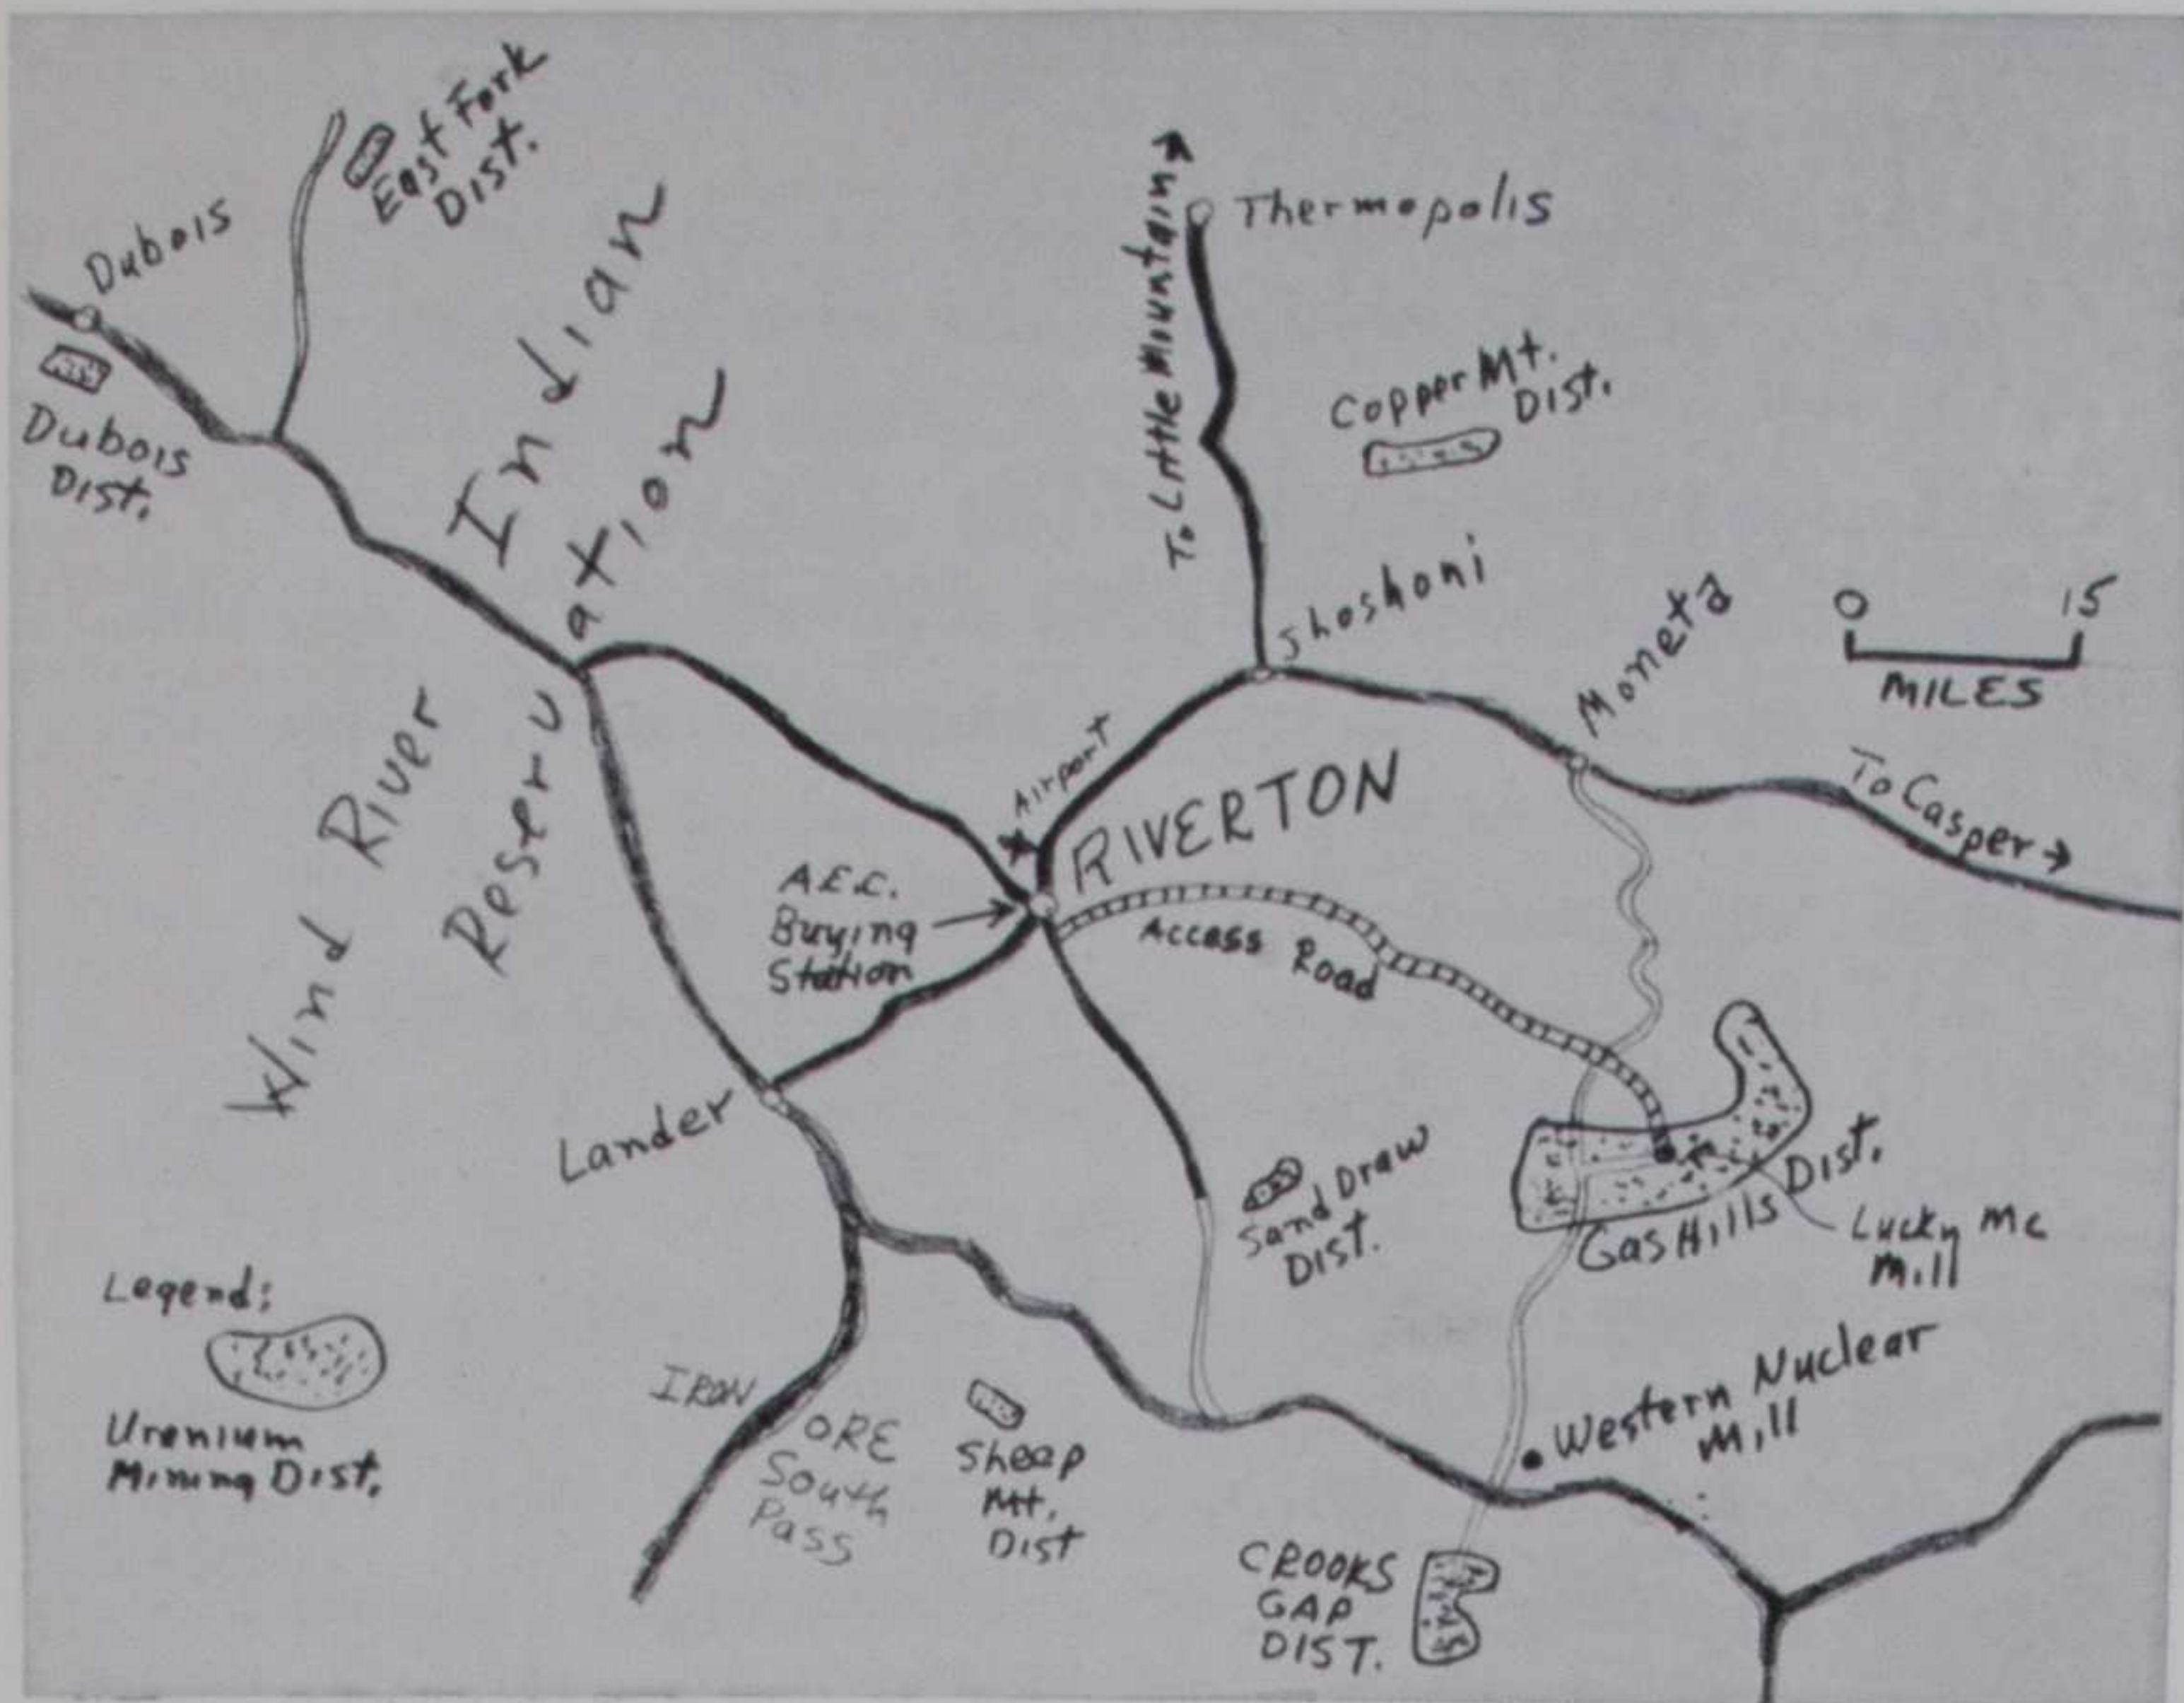 East Fork
Dist.
Dubois
Dubois
Dist.
Indian
Wind River
Reservation
To Little Mountain →
Thermopolis
Copper Mt.
Dist.
Shoshoni
Moneta
0 15
MILES
To Casper →
Airport
RIVERTON
A.E.C.
Buying
Station
Access Road
Lander
Sand Draw
Dist.
Gas Hills Dist.
Lucky Mc
Mill
Legend:
Uranium
Mining Dist.
IRON
ORE
South
Pass
Sheep
Mt.
Dist
Western Nuclear
Mill
CROOKS
GAP
DIST.